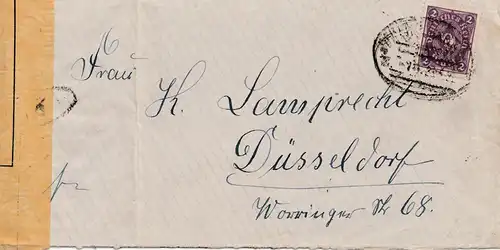 2 2
Frau
K. Lamprecht
Düsseldorf
Worringer Str 68.